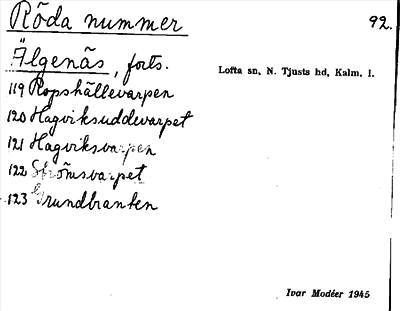 Röda nummer 92.
Älgenäs, forts.
Lofta sn, N. Tjusts hd, Kalm. l.
119 Ropshällevarpen
120 Hagviksuddevarpet
121 Hagviksvarpen
122 Strömsvarpet
123 Grundbranten
Ivar Modéer 1945